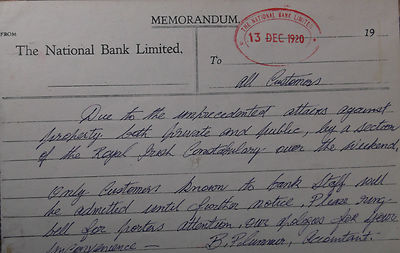 MEMORANDUM.
THE NATIONAL BANK LIMITED
13 DEC 1920
FROM
19
The National Bank Limited.
To
All Customers
Due to the unprecedented attacks against
property both private and public, by a section
of the Royal Irish Constabulary over the weekend,
Only Customers known to bank Staff will
be admitted until further notice, Please ring
bell for porters attention, our apologies for your
inconvenience —
B. Plummer, Accountant.